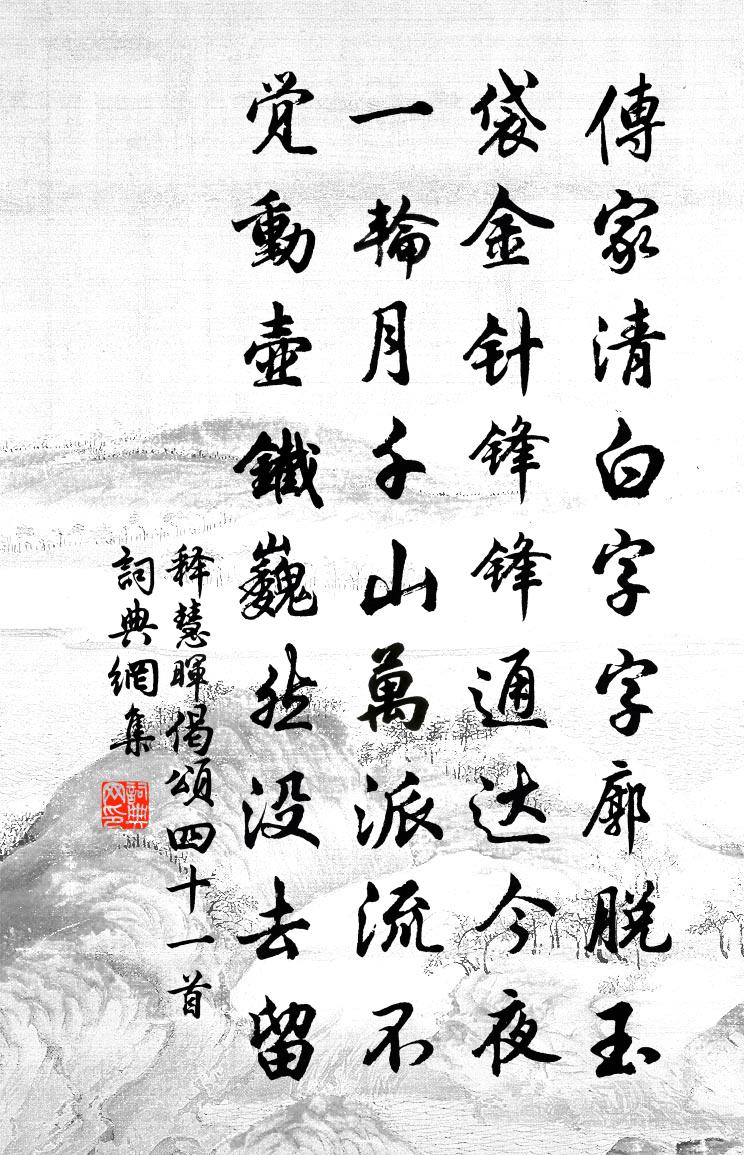 傳家清白字字廓脱玉
袋金针锋锋通达今夜
一輪月千山萬派流不
覺動壺鐵巍然没去留
释慧暉偈頌四十一首
詞典網集
詞典网印